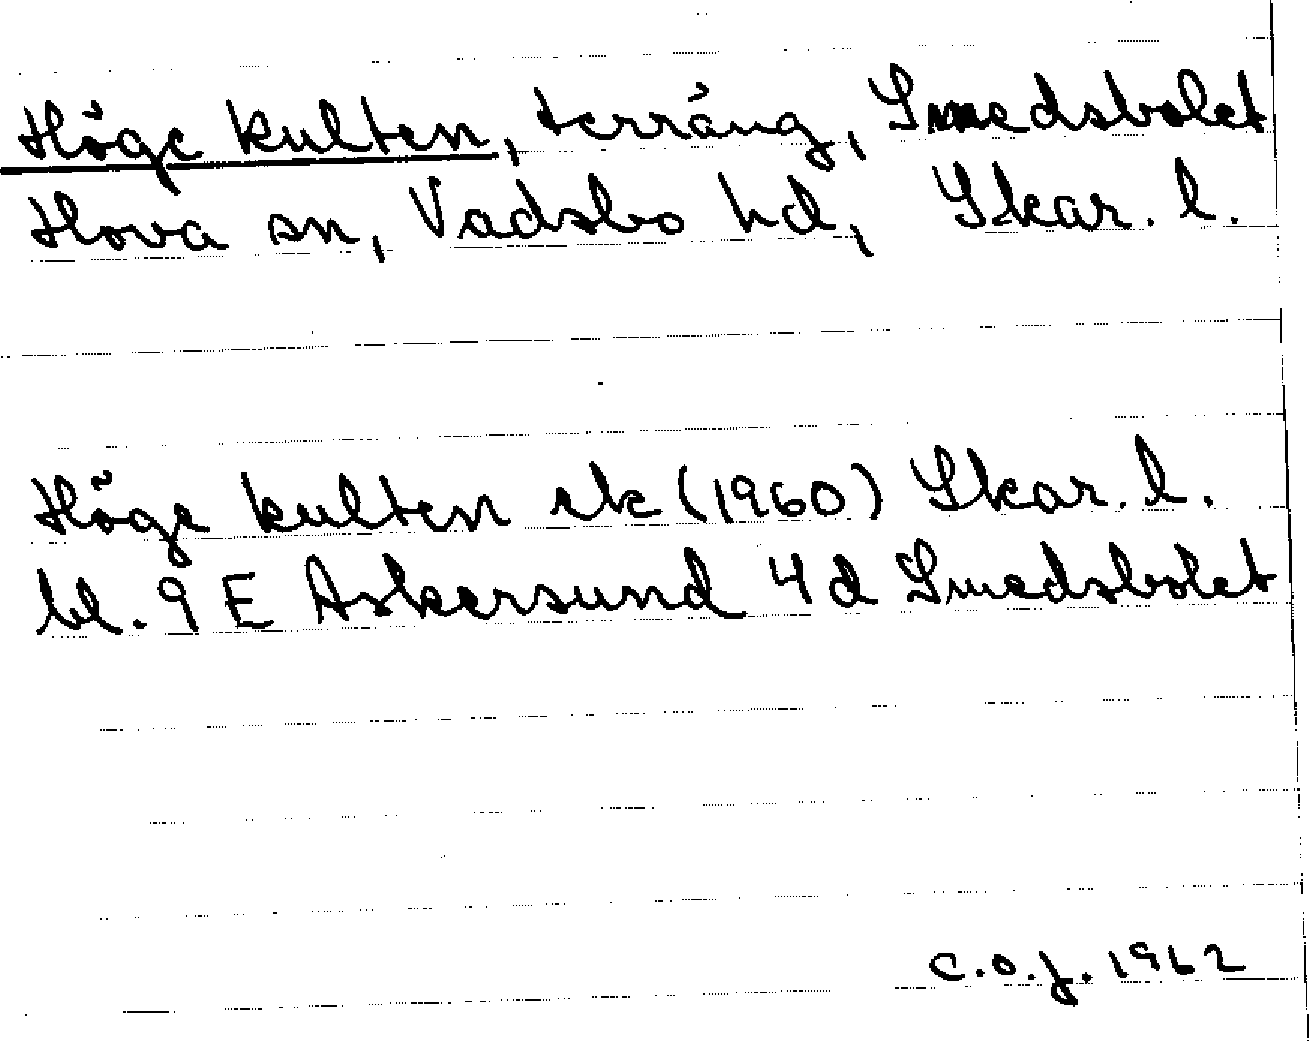 Höge kulten, terräng, Smedsbolet
Hova sn, Vadsbo hd, Skar. l.
Höge kulten ek (1960) Skar. l.
bl. 9 E Askersund 4d Smedsbolet
C.O.J. 1962